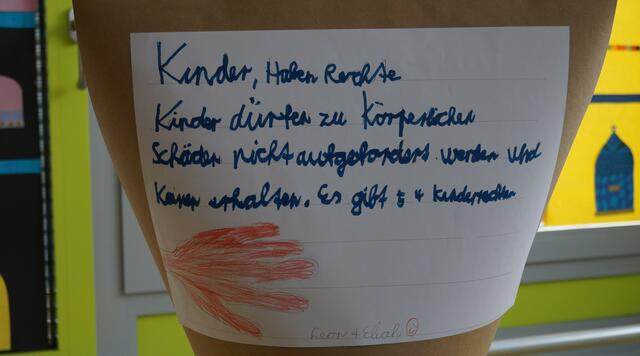 Kinder, Haben Rechte
Kinder dürfen zu Körperlichen
Schäden nicht aufgefordert werden und
Keinen erhalten. Es gibt 54 Kinderrechten
Leon + Eliah